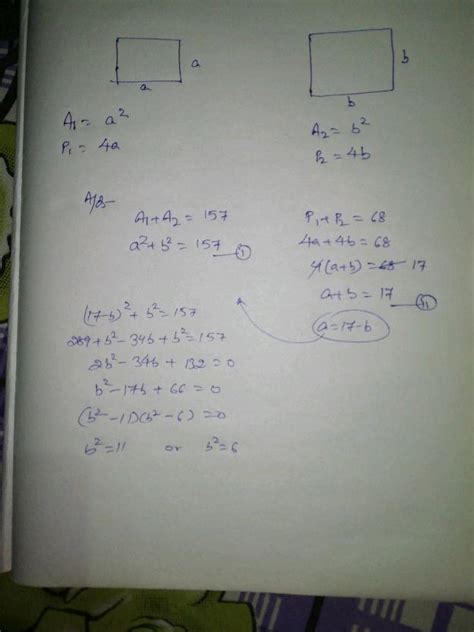 a
a
b
b
A₁ = a²
P₁ = 4a
A₂ = b²
P₂ = 4b
A/q-
A₁+A₂ = 157
a²+b² = 157 —①
P₁+P₂ = 68
4a+4b = 68
4(a+b) = 68 17
a+b = 17 —ⓘⓘ
a=17-b
(17-b)²+b² = 157
289+b²-34b+b² = 157
2b²-34b+132 = 0
b²-17b+66 = 0
(b²-11)(b²-6) = 0
b² = 11 or b² = 6